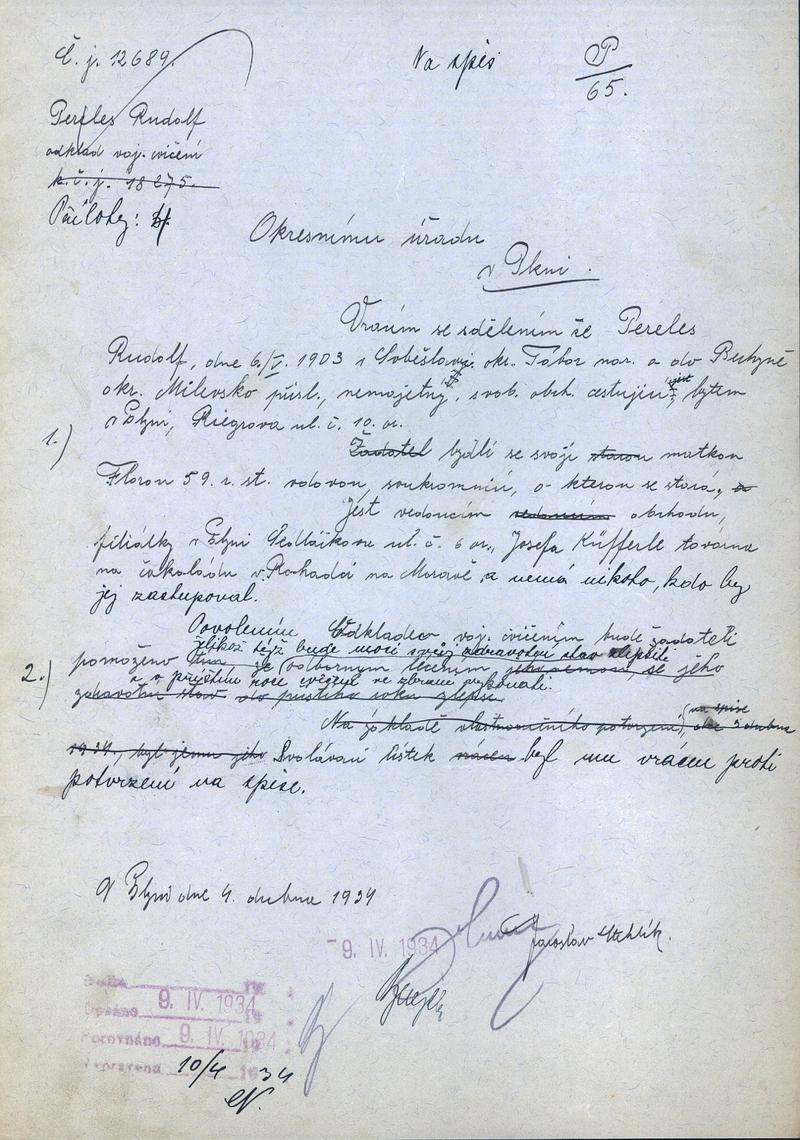 Č. j. 12689.
Na spis
P
65.
Pereles Rudolf
odklad voj. cvičení
k.č.j. 18275.
Přílohy: 4
Okresnímu úřadu
v Plzni.
Vracím se sdělením že Pereles
Rudolf, dne 6./V. 1903 v Soběslavi, okr. Tábor nar. a do
okr. Milevsko přísl., nemajetný, svob. obch. cestující, bytem
v Plzni, Riegrova ul. č. 10.
1.)
Žadatel bydlí se svojí starou matkou
59. r. st. vdovou, soukromnicí, o kterou se stará, a
jest vedoucím obchodu,
filiálky v Plzni Sedláčkova ul. č. 6 or., Josefa Küfferle továrna
na čokoládu v na Moravě, a nemá nikoho, kdo by
jej zastupoval.
Povolením odkladu voj. cvičením bude žadateli
jelikož též bude moci svůj zdravotní stav zlepšiti
2.)
pomoženo se odborným léčením se jeho
a v příštím roce cvičení ve zbrani vykonati.
zdravotní stav do příštího roku zlepší.
(na spise
Na základě vlastnoručního potvrzení, dne 3 dubna
1934, byl jemu jeho Svolávací lístek vrácen byl mu vrácen proti
potvrzení na spise.
V Plzni dne 4. dubna 1934
Jaroslav Stehlík.
9. IV. 1934
Došlo 19
Opsáno 9. IV. 1934
Porovnáno 9. IV. 1934
Vypraveno 10/4 1934